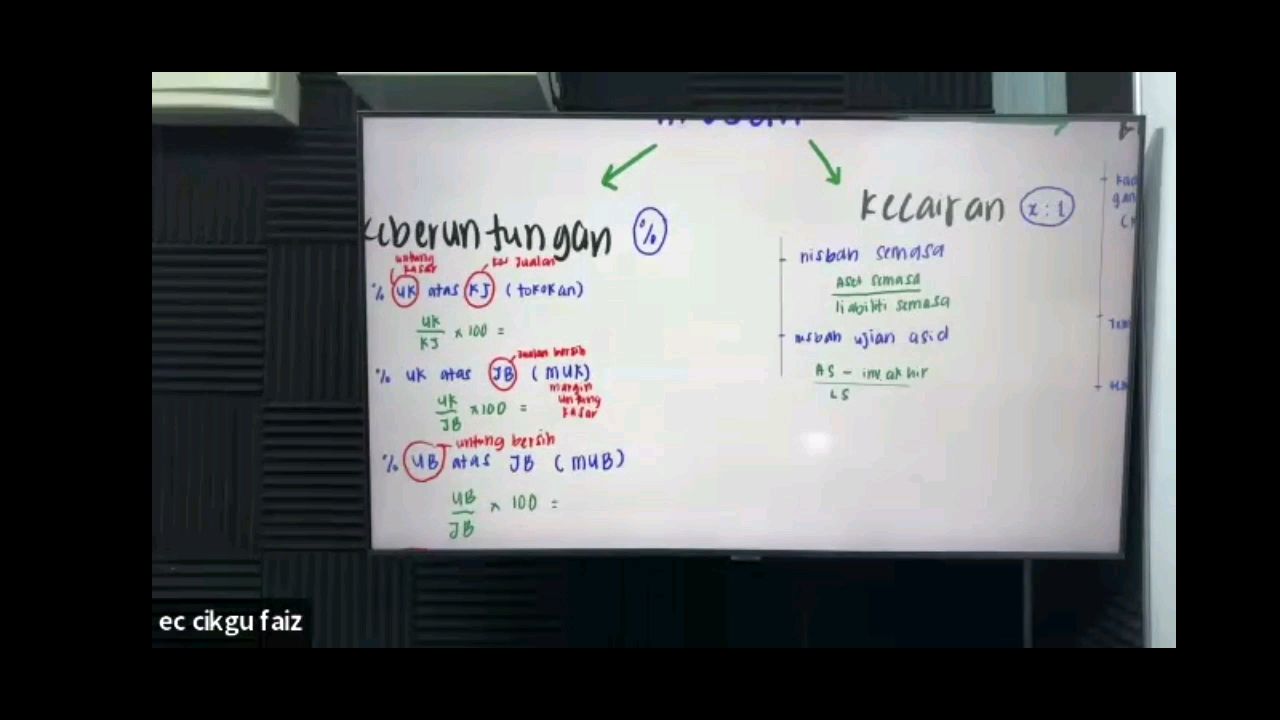 Keberuntungan %
untung
kasar
kos Jualan
% UK atas KJ (tokokan)
UK
KJ
× 100 =
Jualan bersih
% UK atas JB (MUK)
margin
untung
kasar
UK
JB
×100 =
untung bersih
% UB atas JB (MUB)
UB
JB
× 100 =
Kecairan x : 1
nisbah semasa
Aset semasa
liabiliti semasa
nisbah ujian asid
AS - inv akhir
LS
ec cikgu faiz